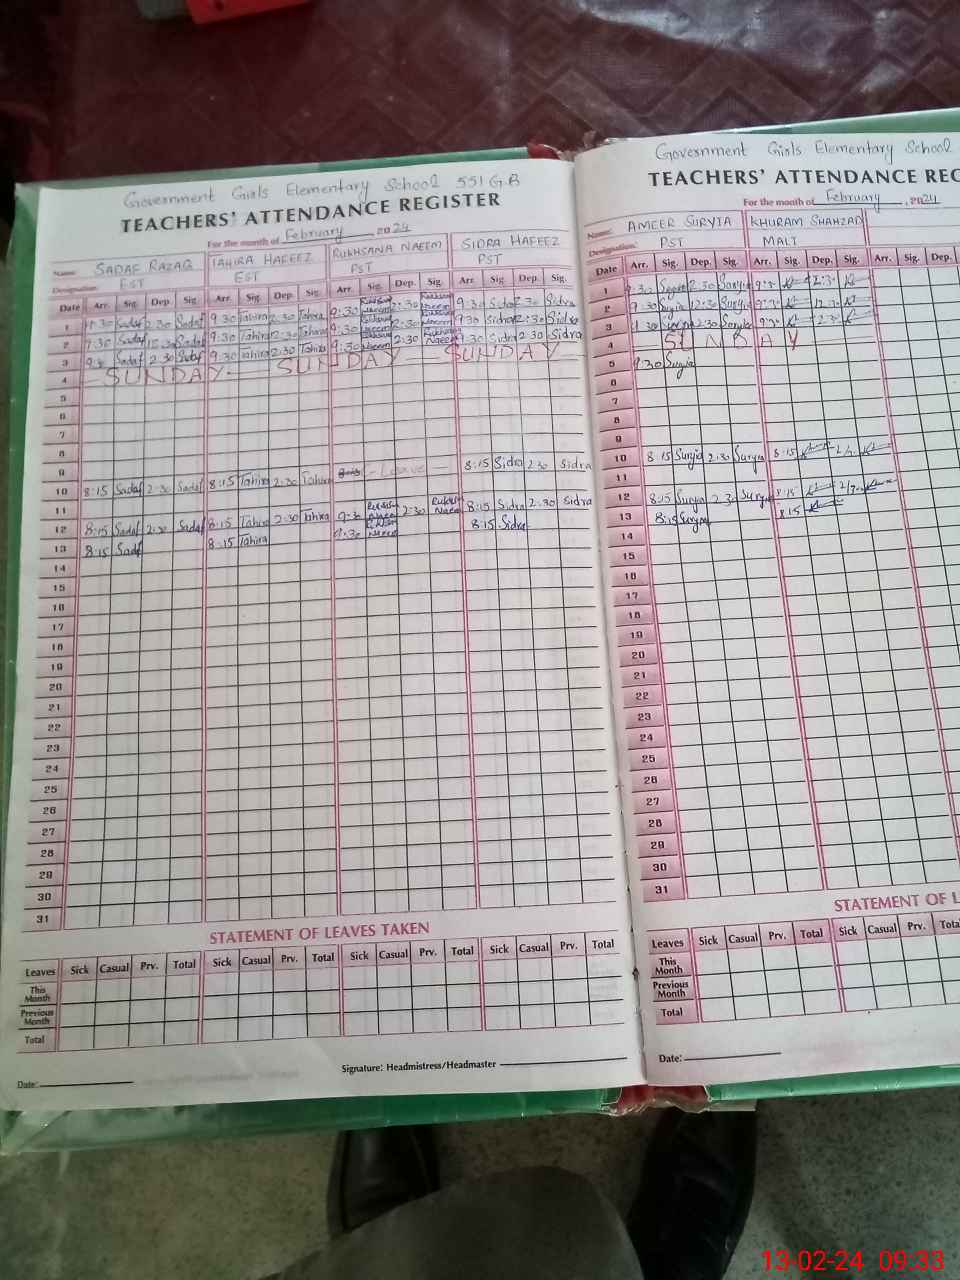 Government Girls Elementary School 551 G.B
TEACHERS' ATTENDANCE REGISTER
For the month of February, 2024
Name: SADAF RAZAQ TAHIRA HAFEEZ RUKHSANA NAEEM SIDRA HAFEEZ
Designation: EST EST PST PST
Date Arr. Sig. Dep. Sig. Arr. Sig. Dep. Sig. Arr. Sig. Dep. Sig. Arr. Sig. Dep. Sig.
1 Sadaf 2:30 Sadaf 9:30 Tahira 2:30 Tahira 9:30 Rukhsana Naeem 2:30 Rukhsana Naeem 9:30 Sidra 2:30 Sidra
2 9:30 Sadaf Sadaf 9:30 Tahira 2:30 Tahira 9:30 Rukhsana Naeem 2:30 Rukhsana Naeem 9:30 Sidra 12:30 Sidra
3 Sadaf 2:30 Sadaf 9:30 Tahira 2:30 Tahira 9:30 Naeem Rukhsana Naeem 9:30 Sidra 2:30 Sidra
4 SUNDAY SUNDAY SUNDAY
5
6
7
8
9
10 8:15 Sadaf 2:30 Sadaf 8:15 Tahira 2:30 Tahira 8:15 Leave 8:15 Sidra 2:30 Sidra
11
12 8:15 Sadaf 2:30 Sadaf 8:15 Tahira 2:30 Tahira 9:30 Rukhsana Naeem 2:30 Rukhsana Naeem 8:15 Sidra 2:30 Sidra
13 8:15 Sadaf 8:15 Tahira 9:30 Rukhsana Naeem 8:15 Sidra
14
15
16
17
18
19
20
21
22
23
24
25
26
27
28
29
30
31
STATEMENT OF LEAVES TAKEN
Leaves Sick Casual Prv. Total Sick Casual Prv. Total Sick Casual Prv. Total Sick Casual Prv. Total
This Month
Previous Month
Total
Date: Signature: Headmistress/Headmaster
Government Girls Elementary School
TEACHERS' ATTENDANCE REC
For the month of February, 2024
Name: AMEER SURYIA KHURAM SHAHZAD
Designation: PST MALI
Date Arr. Sig. Dep. Sig. Arr. Sig. Dep. Sig. Arr. Sig. Dep.
1 9:30 Suryia 2:30 Suryia
2 9:30 Suryia 12:30 Suryia
3 Suryia 2:30 Suryia
4 SUNDAY
5 9:30 Suryia
6
7
8
9
10 8:15 Suryia 2:30 Suryia 8:15
11
12 8:15 Suryia 2:30 Suryia 8:15
13 8:15 Suryia 8:15
14
15
16
17
18
19
20
21
22
23
24
25
26
27
28
29
30
31
STATEMENT OF L
Leaves Sick Casual Prv. Total Sick Casual Prv. Total
This Month
Previous Month
Total
Date:
13-02-24 09:33